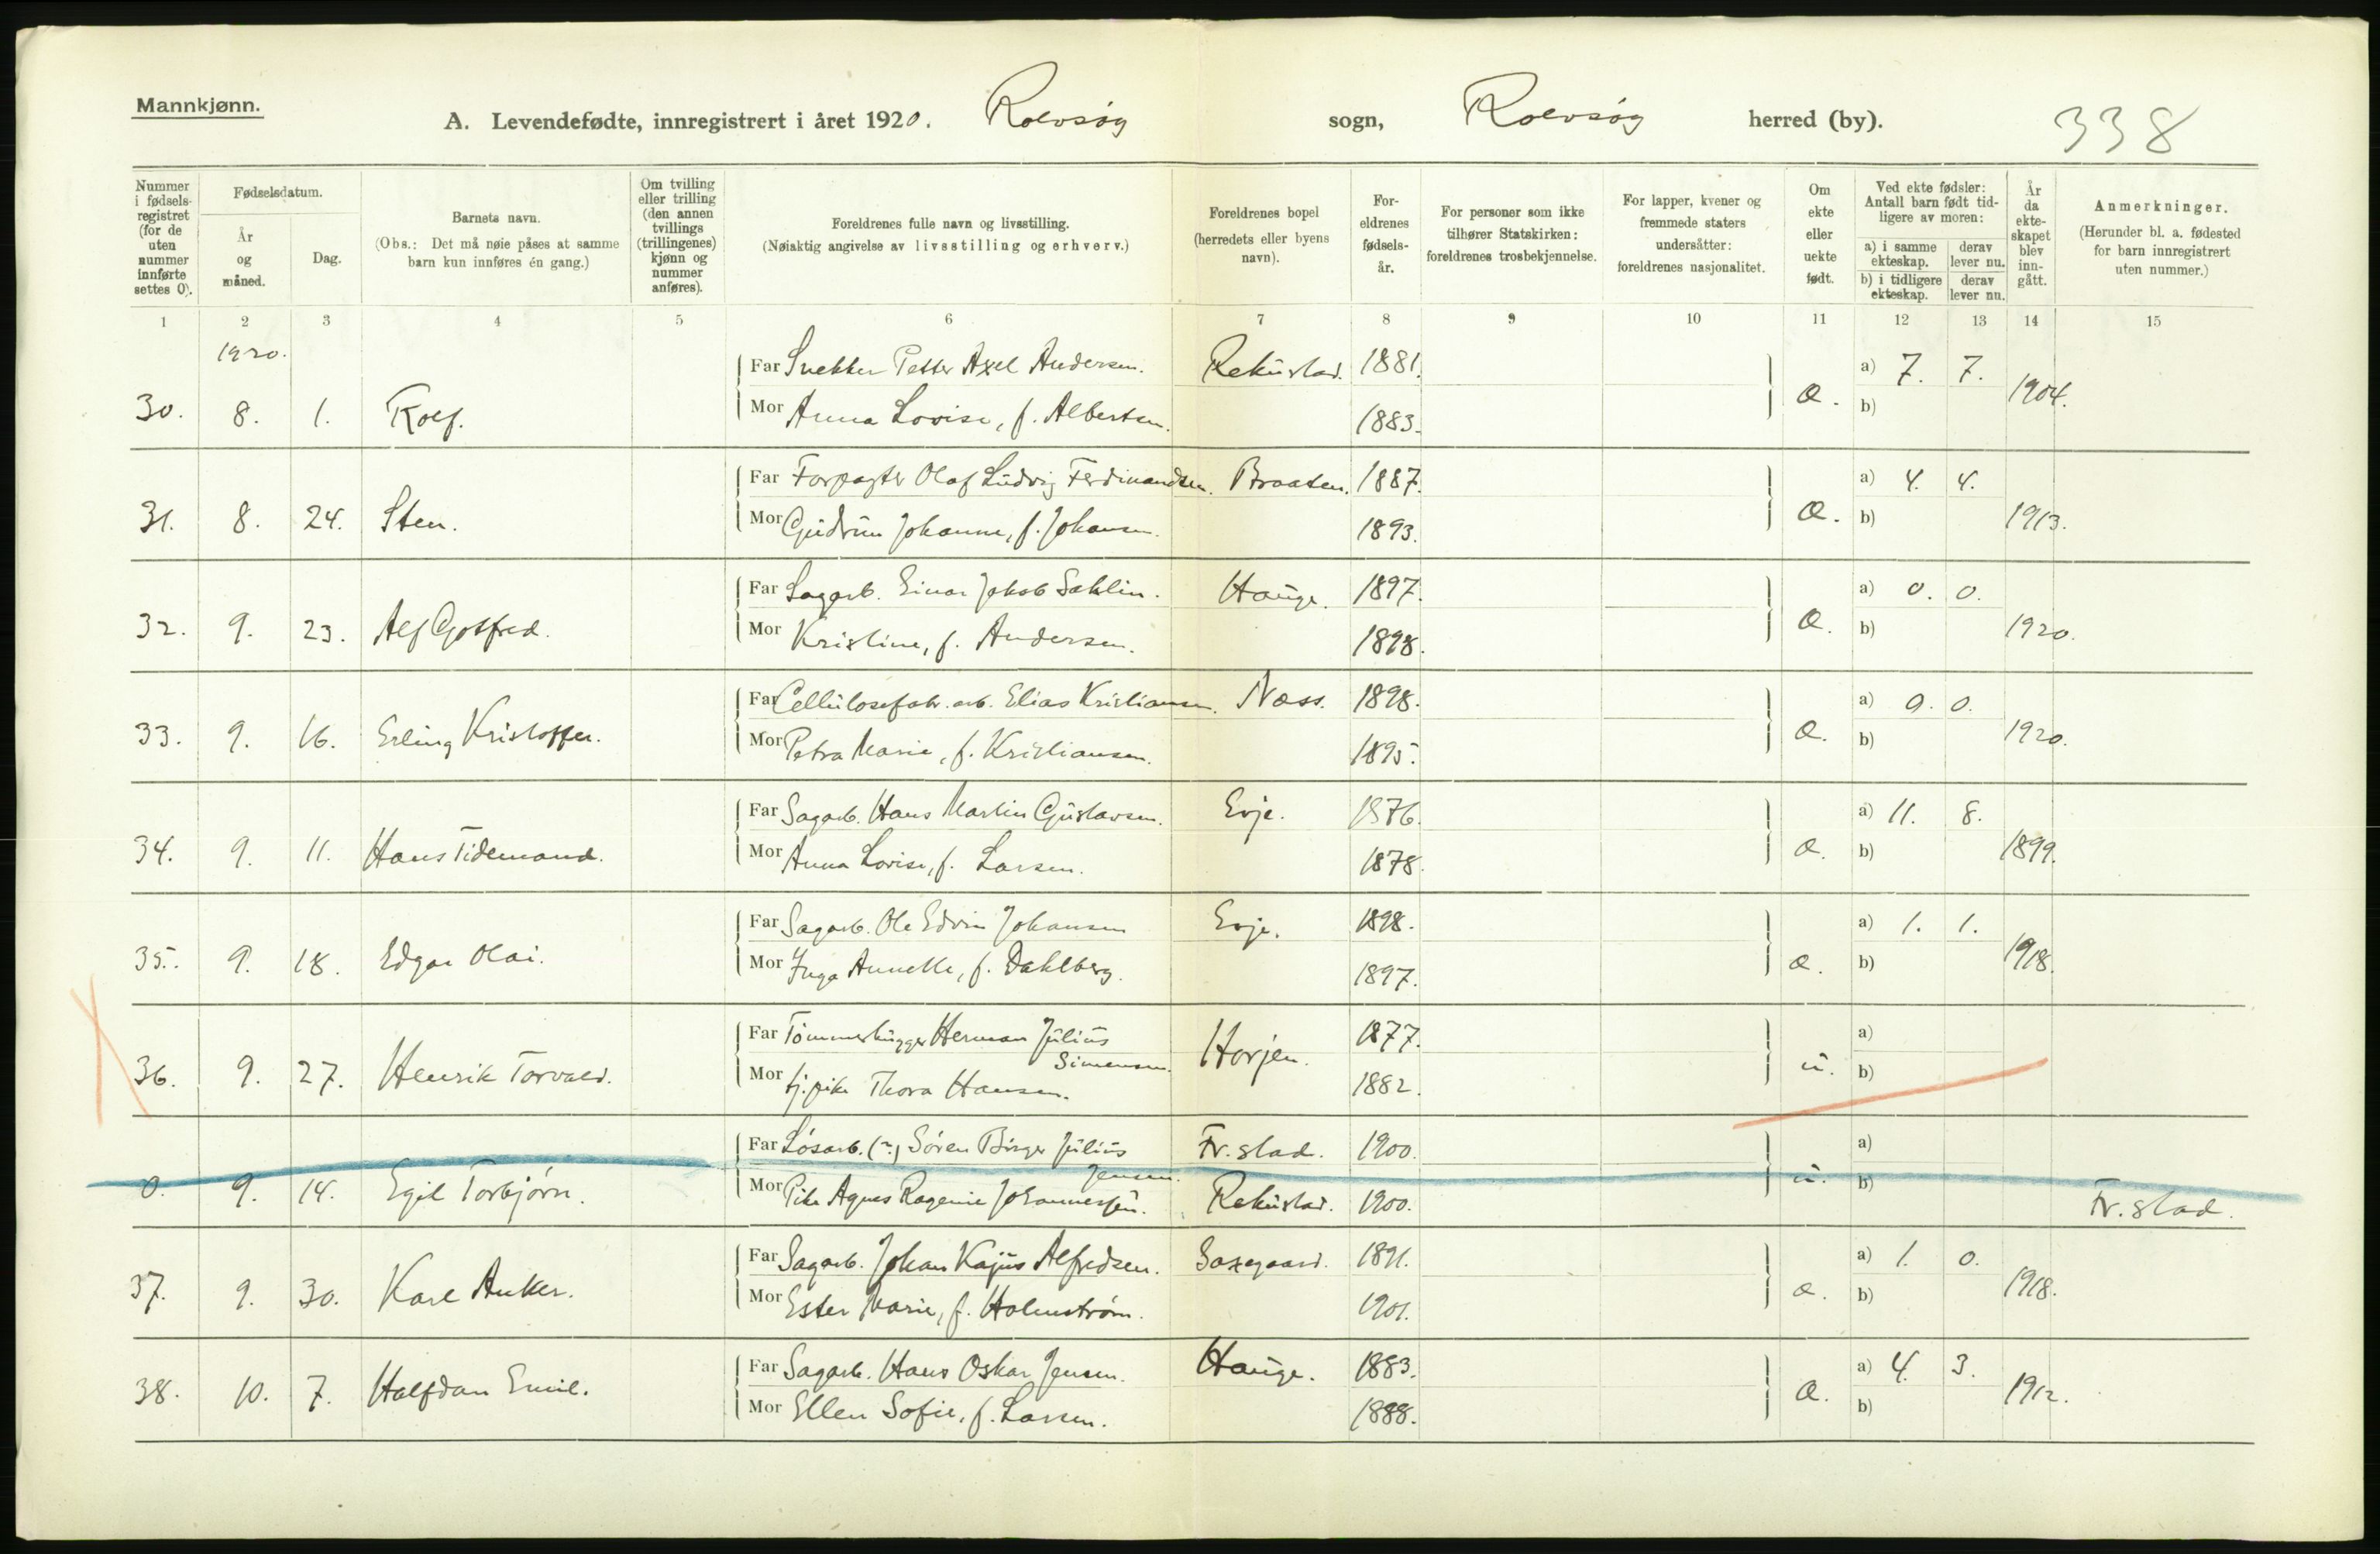 Mannkjønn.
A. Levendefødte, innregistrert i året 1920. Rolvsøy sogn, Rolvsøy herred (by). 338
Nummer i fødsels- registret (for de uten nummer innførte settes 0).
Fødselsdatum.
År og måned.
Dag.
Barnets navn.
(Obs.: Det må nøie påses at samme barn kun innføres én gang.)
Om tvilling eller trilling (den annen tvillings (trillingenes) kjønn og nummer anføres).
Foreldrenes fulle navn og livsstilling.
(Nøiaktig angivelse av livsstilling og erhverv.)
Foreldrenes bopel (herredets eller byens navn).
For- eldrenes fødsels- år.
For personer som ikke tilhører Statskirken: foreldrenes trosbekjennelse.
For lapper, kvener og fremmede staters undersåtter: foreldrenes nasjonalitet.
Om ekte eller uekte født.
Ved ekte fødsler: Antall barn født tid- ligere av moren:
a) i samme ekteskap. derav lever nu.
b) i tidligere ekteskap. derav lever nu.
År da ekte- skapet blev inn- gått.
Anmerkninger.
(Herunder bl. a. fødested for barn innregistrert uten nummer.)
1 2 3 4 5 6 7 8 9 10 11 12 13 14 15
1920.
Far Snekker Petter Axel Andersen. Rekustad. 1881. a) 7. 7.
30. 8. 1. Rolf. Mor Anna Lovise, f. Albertsen. 1883. æ. b) 1904.
Far Forpagter Olaf Ludvig Ferdinandsen. Braaten. 1887. a) 4. 4.
31. 8. 24. Sten. Mor Gudrun Johanne, f. Johansen. 1893. æ. b) 1913.
Far Sagarb. Einar Jakob Sahlin. Hauge. 1897. a) 0. 0.
32. 9. 23. Alf Gotfred. Mor Kristine, f. Andersen. 1898. æ. b) 1920.
Far Cellulosefabr. arb. Elias Kristiansen. Næss. 1898. a) 0. 0.
33. 9. 16. Erling Kristoffer. Mor Petra Marie, f. Kristiansen. 1895. æ. b) 1920.
Far Sagarb. Hans Martin Gustavsen. Evje. 1876. a) 11. 8.
34. 9. 11. Hans Tidemand. Mor Anna Lovise, f. Larsen. 1878. æ. b) 1899.
Far Sagarb. Ole Edvin Johansen Evje. 1898. a) 1. 1.
35. 9. 18. Edgar Olai. Mor Inga Annette, f. Dahlberg. 1897. æ. b) 1918.
Far Tømmerhugger Herman Julius Simensen. Horjen. 1877. a)
36. 9. 27. Henrik Torvald. Mor tj. pike Thora Hansen. 1882. u. b)
Far Løsarb. (?) Søren Birger Julius Jensen. Fr.stad. 1900. a)
0. 9. 14. Egil Torbjørn. Mor Pike Agnes Ragenie Johannessen. Rekustad. 1900. u. b) Fr.stad.
Far Sagarb. Johan Kajus Alfredsen. Saxegaard. 1891. a) 1. 0.
37. 9. 30. Karl Anker. Mor Ester Marie, f. Holmstrøm. 1901. æ. b) 1918.
Far Sagarb. Hans Oskar Jensen. Hauge. 1883. a) 4. 3.
38. 10. 7. Halfdan Emil. Mor Ellen Sofie, f. Larsen. 1888. æ. b) 1912.